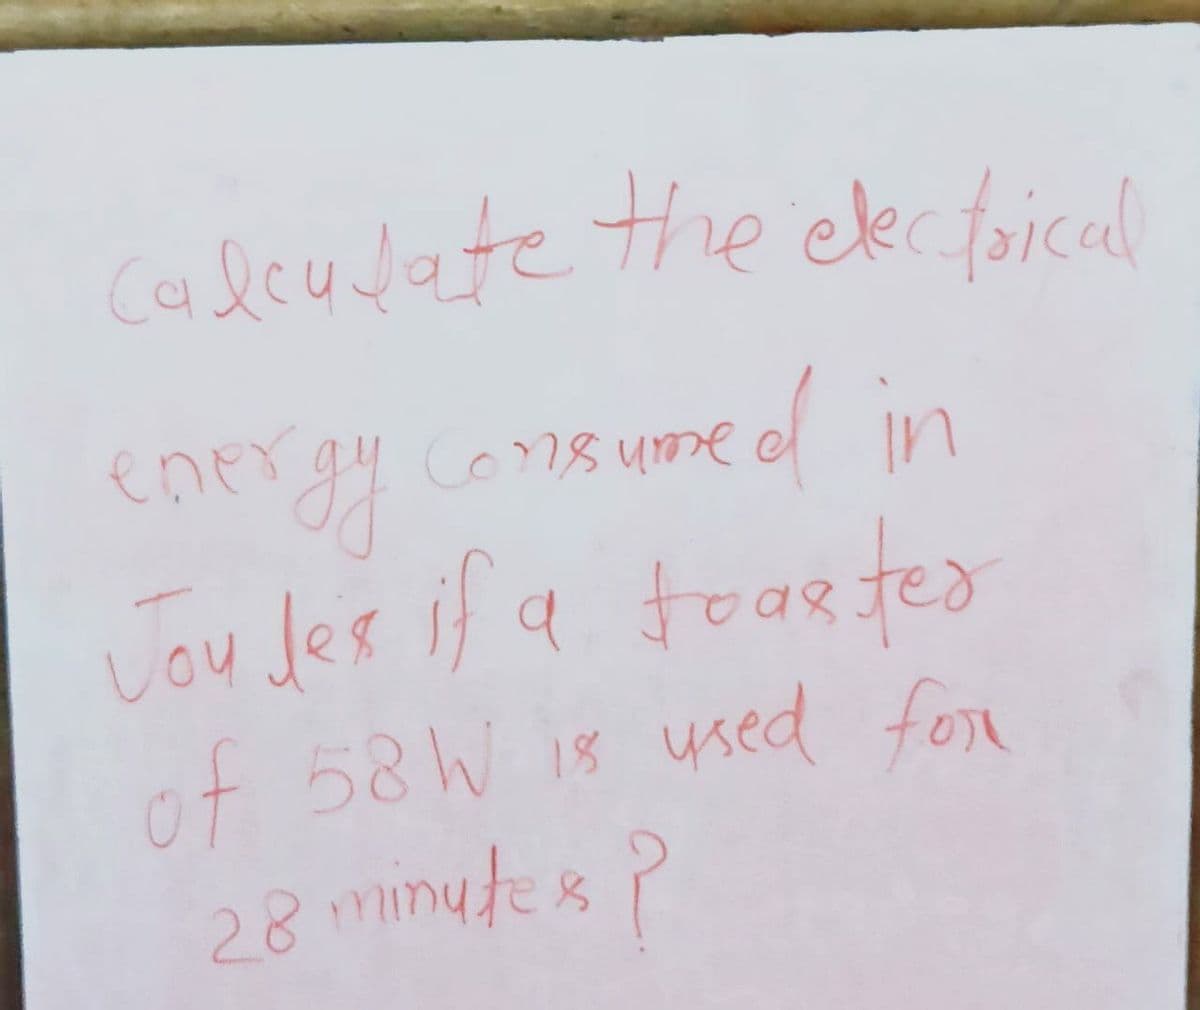 Calculate the electrical
energy consumed in
Joules if a toaster
of 58W is used for
28 minutes?